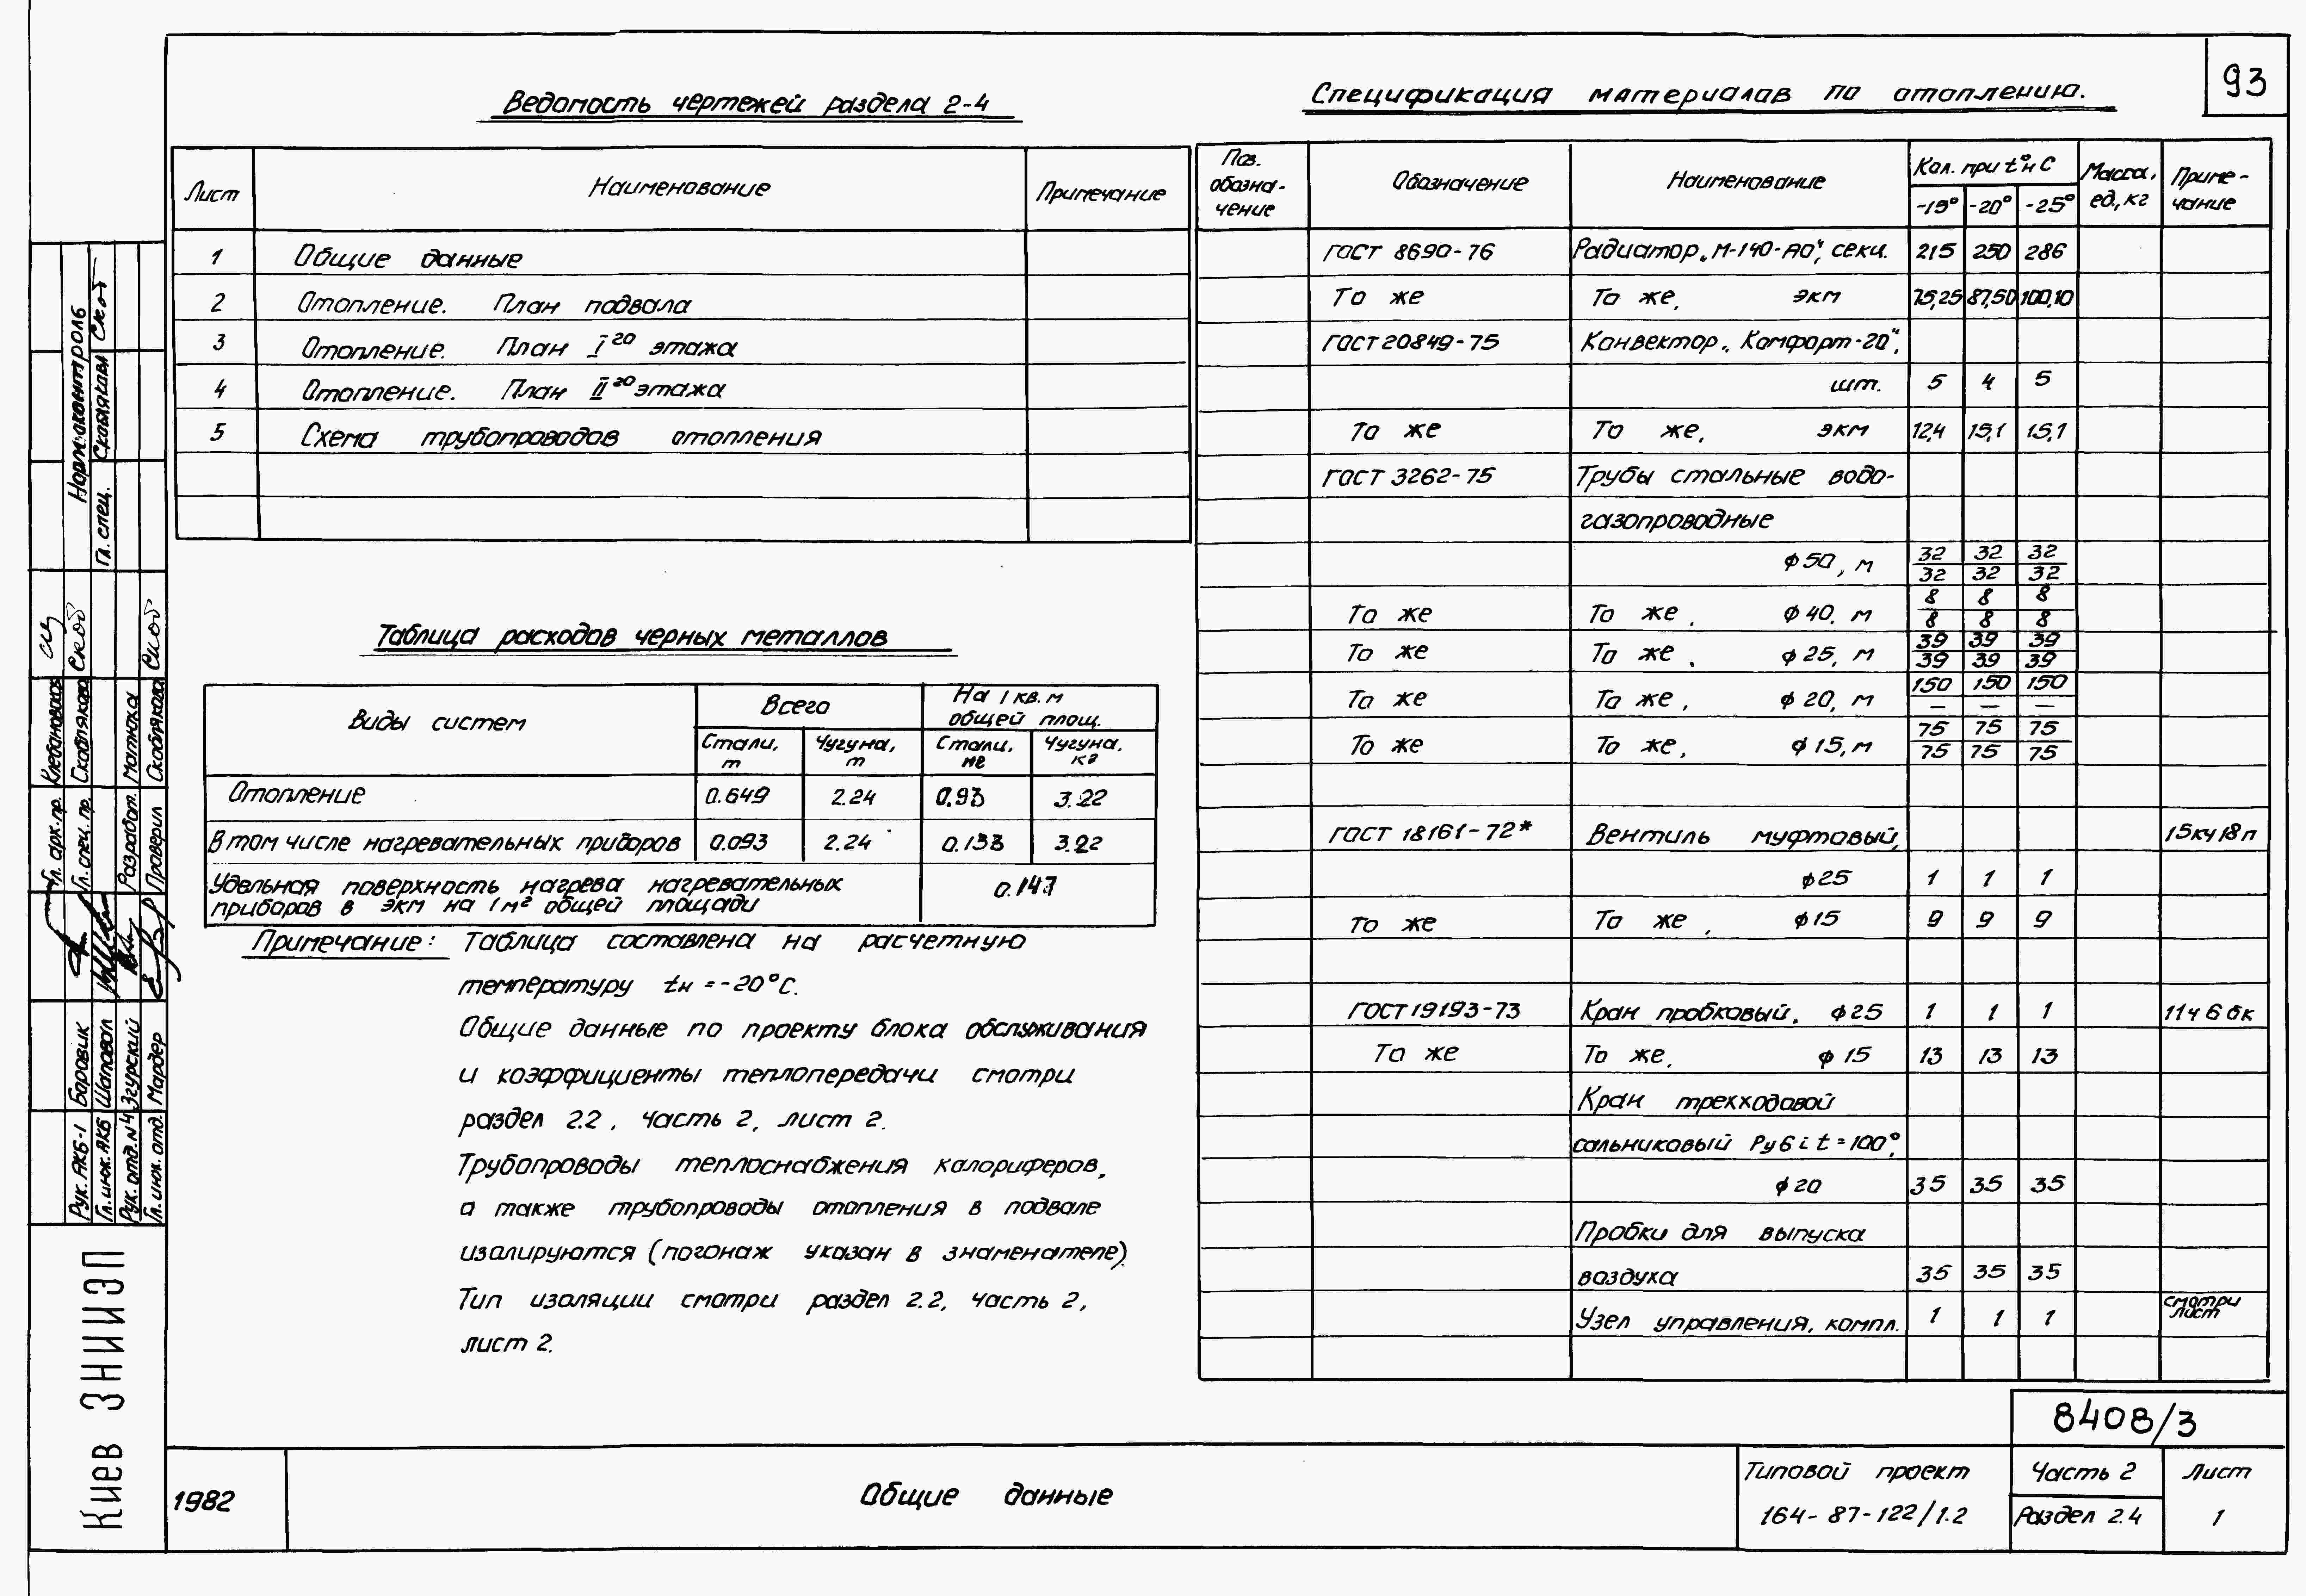 93
Ведомость чертежей раздела 2-4
Лист Наименование Примечание
1 Общие данные
2 Отопление. План подвала
3 Отопление. План I го этажа
4 Отопление. План II го этажа
5 Схема трубопроводов отопления
Таблица расходов черных металлов
Виды систем Всего На 1 кв. м общей площ.
Стали, т Чугуна, т Стали, кг Чугуна, кг
Отопление 0.649 2.24 0.93 3.22
В том числе нагревательных приборов 0.093 2.24 0.133 3.22
Удельная поверхность нагрева нагревательных
приборов в экм на 1 м² общей площади 0.147
Примечание: Таблица составлена на расчетную
температуру tн = -20°С.
Общие данные по проекту блока обслуживания
и коэффициенты теплопередачи смотри
раздел 2.2, часть 2, лист 2.
Трубопроводы теплоснабжения калориферов,
а также трубопроводы отопления в подвале
изолируются (погонаж указан в знаменателе).
Тип изоляции смотри раздел 2.2, часть 2,
лист 2.
Спецификация материалов по отоплению.
Поз. обозна-чение Обозначение Наименование Кол. при t°н С Масса, ед., кг Приме-чание
-15° -20° -25°
ГОСТ 8690-76 Радиатор „М-140-АО", секц. 215 250 286
То же То же, экм 75,25 87,50 100,10
ГОСТ 20849-75 Конвектор „Комфорт-20",
шт. 5 4 5
То же То же, экм 12,4 15,1 15,1
ГОСТ 3262-75 Трубы стальные водо-
газопроводные
ф 50, м 32/32 32/32 32/32
То же То же, ф 40, м 8/8 8/8 8/8
То же То же, ф 25, м 39/39 39/39 39/39
То же То же, ф 20, м 150/— 150/— 150/—
То же То же, ф 15, м 75/75 75/75 75/75
ГОСТ 18161-72* Вентиль муфтовый, 15кч18п
ф25 1 1 1
То же То же, ф15 9 9 9
ГОСТ 19193-73 Кран пробковый, ф25 1 1 1 11ч6бк
То же То же, ф 15 13 13 13
Кран трехходовой
сальниковый Ру6 i t=100°,
ф20 35 35 35
Пробки для выпуска
воздуха 35 35 35
Узел управления, компл. 1 1 1 смотри лист
8408/3
1982 Общие данные
Типовой проект
164-87-122/1.2
Часть 2
Раздел 2.4
Лист
1
Киев ЗНИИЭП
Рук. АКБ-1 Боровик
Гл. инж. АКБ Шаповал
Рук. отд. N4 Згурский
Гл. инж. отд. Мардер
Гл. арх. пр. Клебановская
Гл. спец. пр. Скоблякова
Разработ. Матюха
Проверил Скоблякова
Нормоконтроль
Гл. спец. Скоблякова